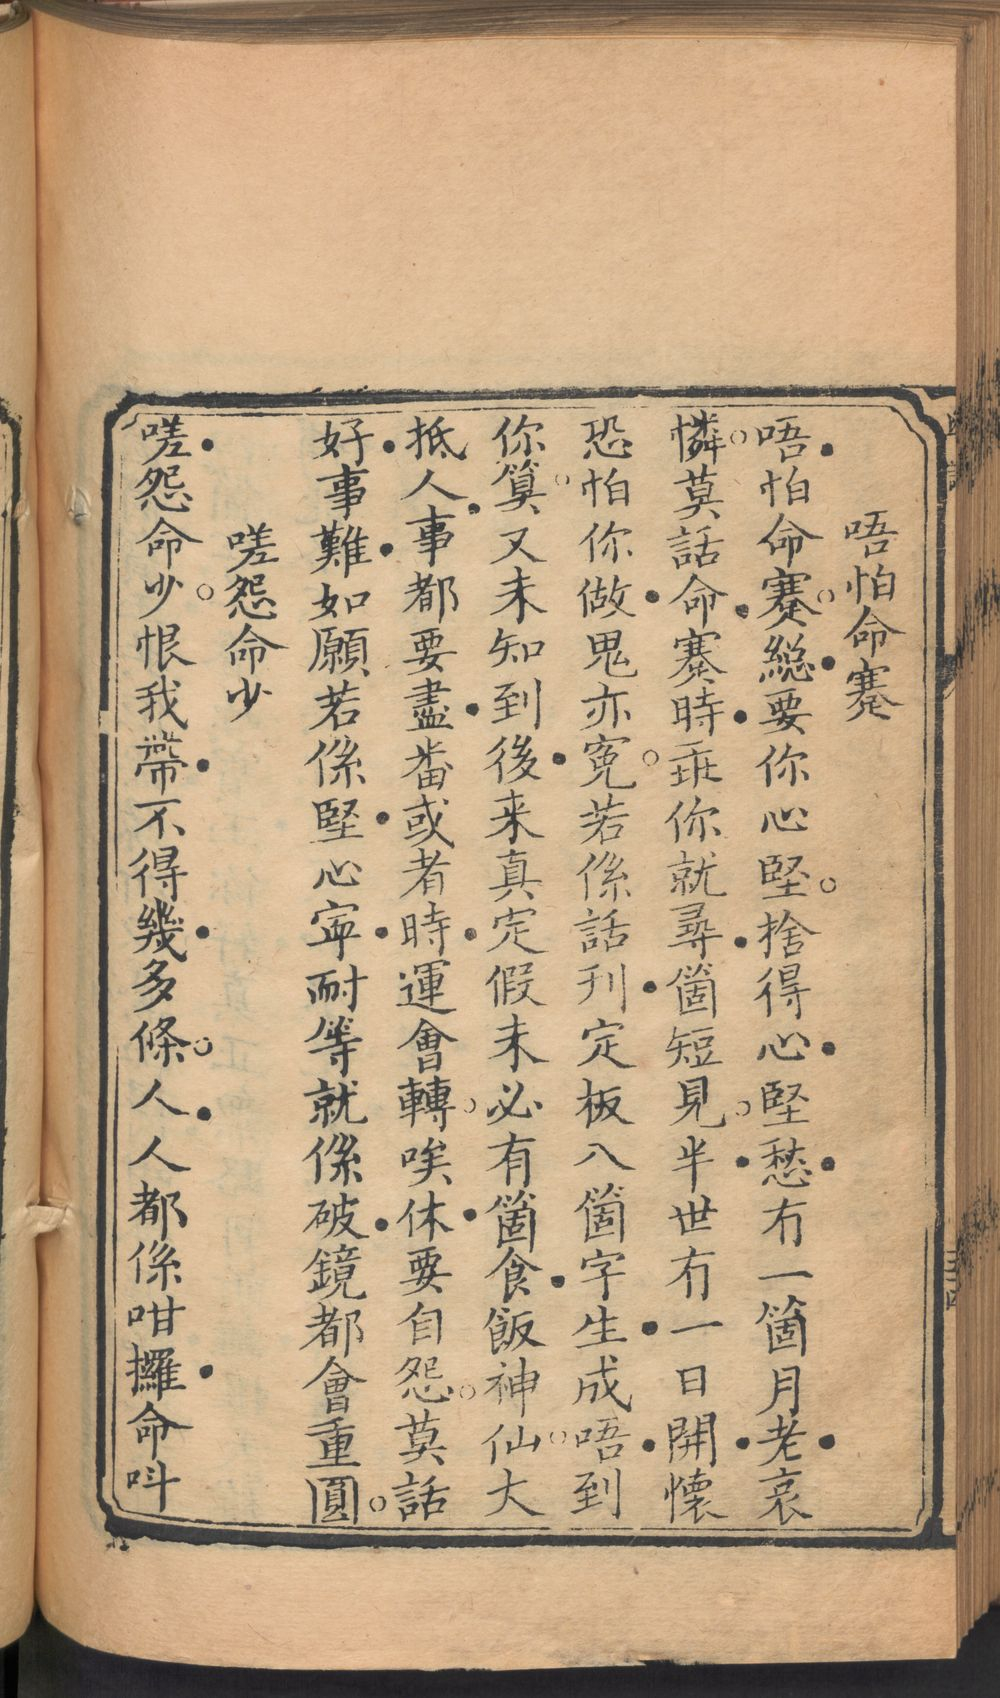 唔怕命蹇
唔怕命蹇總要你心堅捨得心堅愁冇一箇月老哀
憐莫話命蹇時乖你就尋箇短見半世冇一日開懷
恐怕你做鬼亦寃若係話刋定板八箇字生成唔到
你算又未知到後来真定假未必有箇食飯神仙大
抵人事都要盡畨或者時運會轉唉休要自怨莫話
好事難如願若係堅心寧耐等就係破鏡都會重圓
嗟怨命少
嗟怨命少恨我帶不得幾多條人人都係咁攞命呌